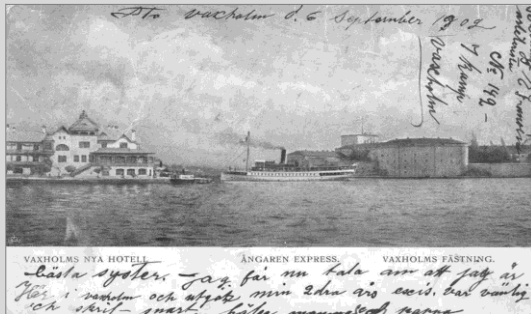 Pto vaxholm d. 6 September 1902
No 149 -
vaxholm
VAXHOLMS NYA HOTELL. ÅNGAREN EXPRESS. VAXHOLMS FÄSTNING.
bästa syster. - jag får nu tala om att jag är
Här i vaxholm och utgör min 2dra års excis. var vänlig
och skrif snart. hälsa mamma och pappa